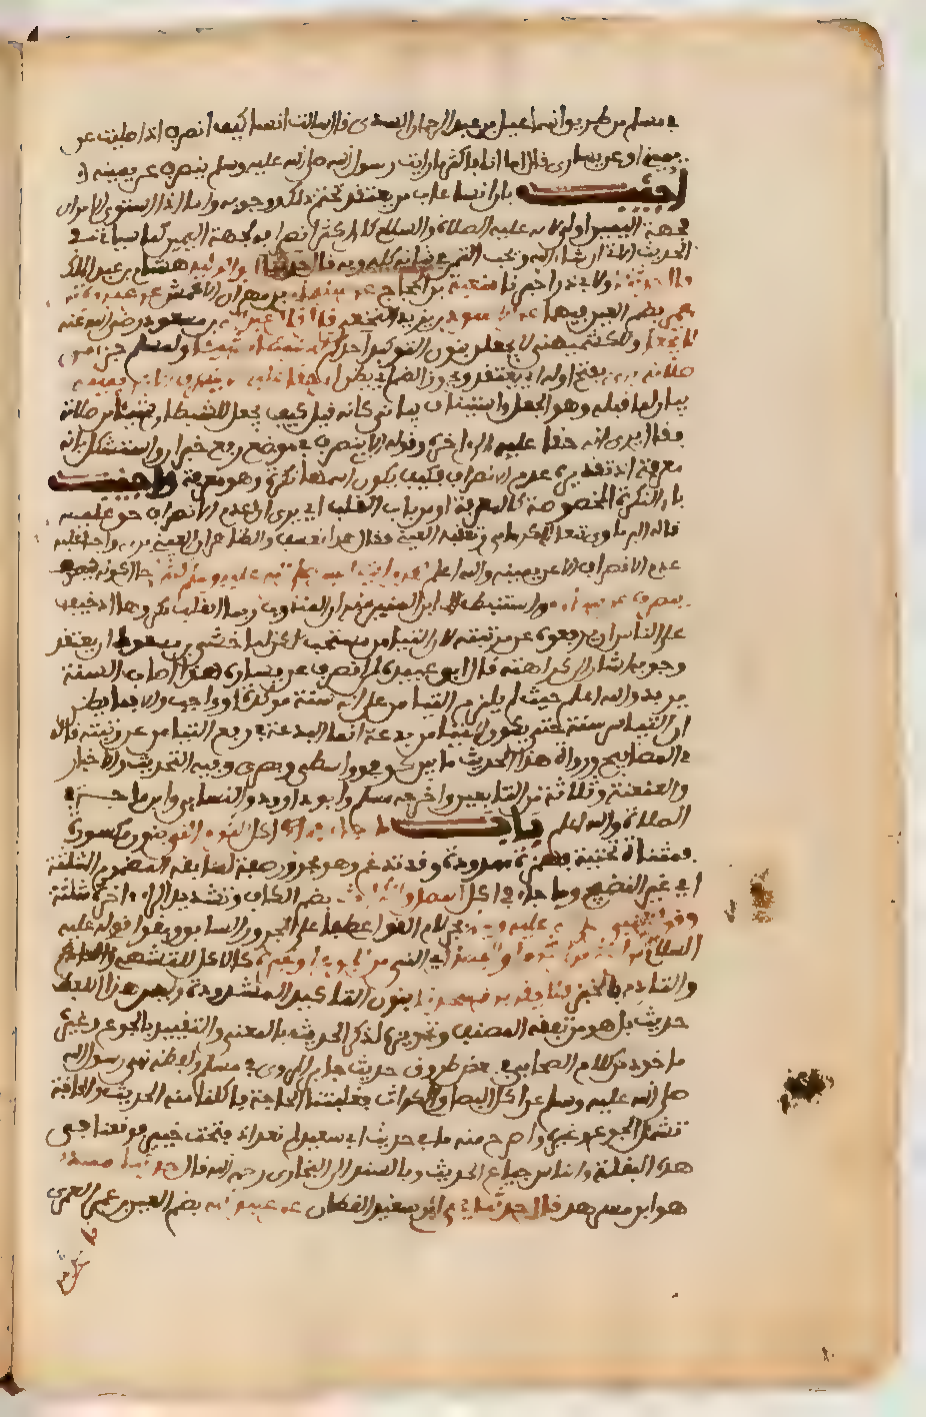 في مسلم من طريق اسماعيل بن عبد الرحمان السدي قال سالت انسا كيف انصرف اذا صليت عن
يميني او عن يساري قال اما انا فاكثر ما رايت رسول الله صلى الله عليه وسلم ينصرف عن يمينه
اجيب بان انسا عاب من يعتقد تحتم ذلك ووجوبه واما اذا استوى الامران
فجهة اليمين اولى لانه عليه الصلاة والسلام كان اكثر انصرافه لجهة اليمين كما سياتي في
الحديث الاتي ان شاء الله ويحب التيمن في شانه كله وبه قال حدثنا ابو الوليد هشام بن عبد الملك
قال حدثنا ولابي ذر اخبرنا شعبة بن الحجاج عن سليمان بن مهران الاعمش عن عمارة بن
عمير بضم العين فيهما عن الاسود بن يزيد النخعي قال قال عبد الله بن مسعود رضي الله عنه
لا يجعل وللكشميهني لا يجعلن بنون التوكيد احدكم للشيطان شيئا ولمسلم جزءا من
صلاته يرى بفتح اوله اي يعتقد ويجوز الضم اي يظن ان حقا عليه ان لا ينصرف الا عن يمينه
بيان لما قبله وهو الجعل او استئناف بياني كانه قيل كيف يجعل للشيطان شيئا من صلاته
فقال يرى ان حقا عليه الى اخره وقوله ان لا ينصرف في موضع رفع خبر ان واستشكل بانه
معرفة اذ تقديره عدم الانصراف فكيف يكون اسمها نكرة وهو معرفة واجيب
بان النكرة المخصوصة كالمعرفة او من باب القلب اي يرى ان عدم الانصراف حق عليه
قاله البرماوي تبعا للكرماني وتعقبه العيني فقال هذا تعسف والظاهر ان المعنى يرى واجبا عليه
عدم الانصراف الا عن يمينه والله اعلم لقد رايت النبي صلى الله عليه وسلم كثيرا حال كونه
ينصرف عن يساره واستنبط ابن المنير منه ان المندوب ربما انقلب مكروها اذا خيف
على الناس ان يرفعوه عن رتبته لان التيامن مستحب لكن لما خشي بن مسعود ان يعتقد
وجوبه اشار الى كراهته قال ابو عبيدة لمن انصرف عن يساره هذا اصاب السنة
يريد والله اعلم حيث لم يلزم التيامن على انه سنة مؤكدة او واجب والا فما يظن
ان التياسر سنة حتى يكون التيامن بدعة انما البدعة في رفع التيامن عن رتبته قاله
في المصابيح ورواة هذا الحديث ما بين كوفي وواسطي وبصري وفيه التحديث والاخبار
والعنعنة وثلاثة من التابعين واخرجه مسلم وابو داوود والنسائي وابن ماجة في
الصلاة والله اعلم باب ما جاء في اكل الثوم الني بنون مكسورة
فمثناة تحتية فهمزة ممدودة وقد تدغم وهو مجرور صفة لسابقه المضموم المثلثة
اي غير النضيج وما جاء في اكل البصل والكراث بضم الكاف وتشديد الراء اخره مثلثة
وقول النبي صلى الله عليه وسلم بجر لام القول عطفا على المجرور السابق وقوله عليه
السلام من اكل الثوم او البصل اي الني من الجوع او غيره كالاكل للتشهي
والتادم بالخبز فلا يقربن مسجدنا بنون التاكيد المشددة وليس هذا اللفظ
حديث بل هو من تفقه المصنف وتجويزه لذكر الحديث بالمعنى والتقييد بالجوع وغيره
ماخوذ من كلام الصحابي في بعض طرق حديث جابر المروي في مسلم ولفظه نهى رسول الله
صلى الله عليه وسلم عن اكل البصل والكراث فغلبتنا الحاجة فاكلنا منه الحديث والحاجة
تشمل الجوع وغيره واصرح منه ما في حديث ابي سعيد لم نعد ان فتحت خيبر فوقعنا في
هذه البقلة والناس جياع الحديث وبالسند الى البخاري رحمه الله قال حدثنا مسدد
هو ابن مسرهد قال حدثنا يحيى اي ابن سعيد القطان عن عبيد الله بضم العين بن عمر العمري